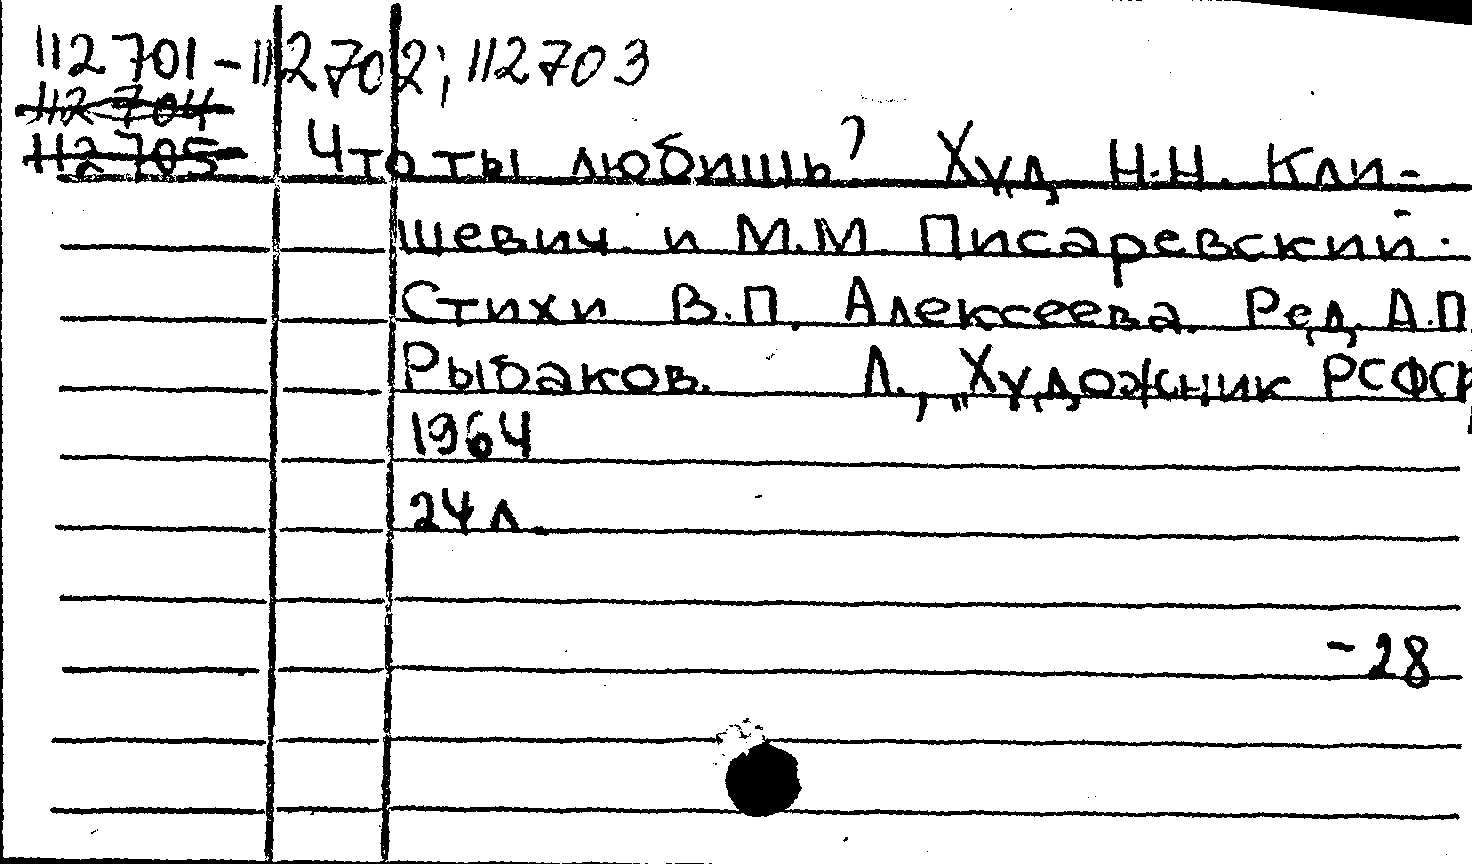 112701-112702; 112703
112704
112705 Что ты любишь? Худ. Н.Н. Кли-
шевич и М.М. Писаревский.
Стихи В.П. Алексеева. Ред. А.П.
Рыбаков. Л., „Художник РСФСР
1964
24 л.
-28